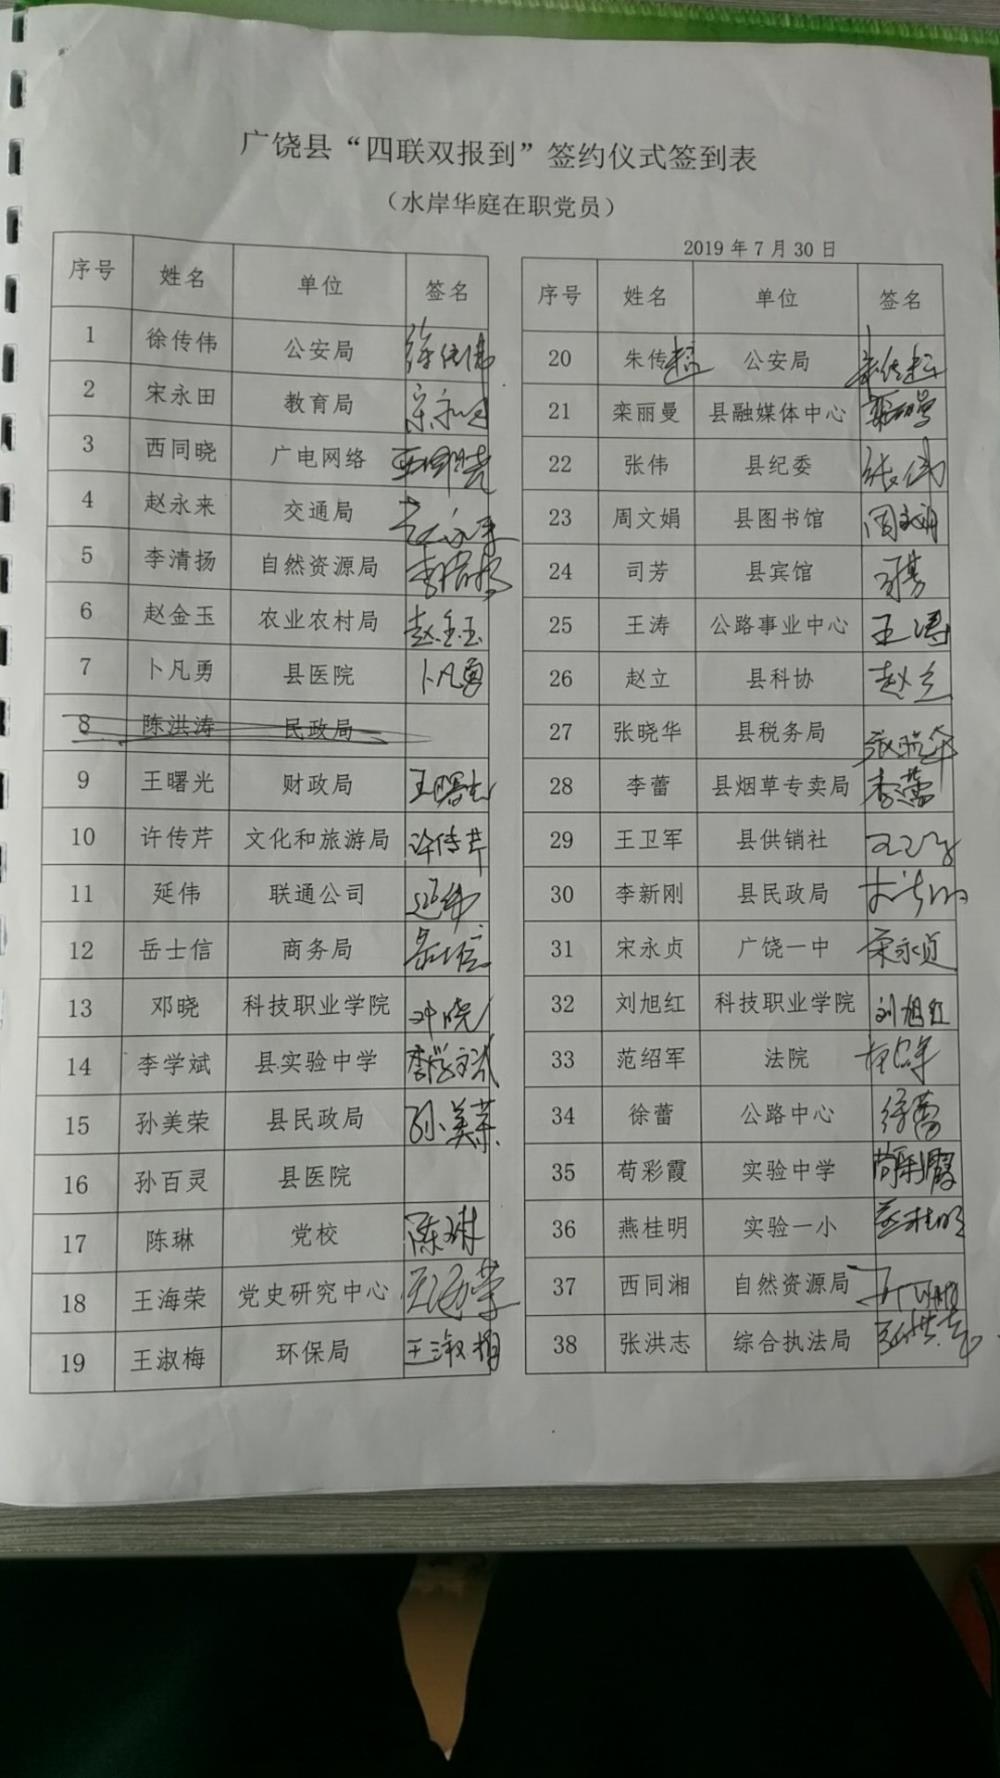 广饶县“四联双报到”签约仪式签到表
（水岸华庭在职党员）
2019年7月30日
序号 姓名 单位 签名
1 徐传伟 公安局 徐传伟
2 宋永田 教育局 宋永田
3 西同晓 广电网络 西同晓
4 赵永来 交通局 赵永来
5 李清扬 自然资源局 李清扬
6 赵金玉 农业农村局 赵金玉
7 卜凡勇 县医院 卜凡勇
8 陈洪涛 民政局
9 王曙光 财政局 王曙光
10 许传芹 文化和旅游局 许传芹
11 延伟 联通公司 延伟
12 岳士信 商务局 岳士信
13 邓晓 科技职业学院 邓晓
14 李学斌 县实验中学 李学斌
15 孙美荣 县民政局 孙美荣
16 孙百灵 县医院
17 陈琳 党校 陈琳
18 王海荣 党史研究中心 王海荣
19 王淑梅 环保局 王淑梅
序号 姓名 单位 签名
20 朱传超 公安局 朱传超
21 栾丽曼 县融媒体中心 栾丽曼
22 张伟 县纪委 张伟
23 周文娟 县图书馆 周文娟
24 司芳 县宾馆 司芳
25 王涛 公路事业中心 王涛
26 赵立 县科协 赵立
27 张晓华 县税务局 张晓华
28 李蕾 县烟草专卖局 李蕾
29 王卫军 县供销社 王卫军
30 李新刚 县民政局 李新刚
31 宋永贞 广饶一中 宋永贞
32 刘旭红 科技职业学院 刘旭红
33 范绍军 法院 范绍军
34 徐蕾 公路中心 徐蕾
35 苟彩霞 实验中学 苟彩霞
36 燕桂明 实验一小 燕桂明
37 西同湘 自然资源局 西同湘
38 张洪志 综合执法局 张洪志